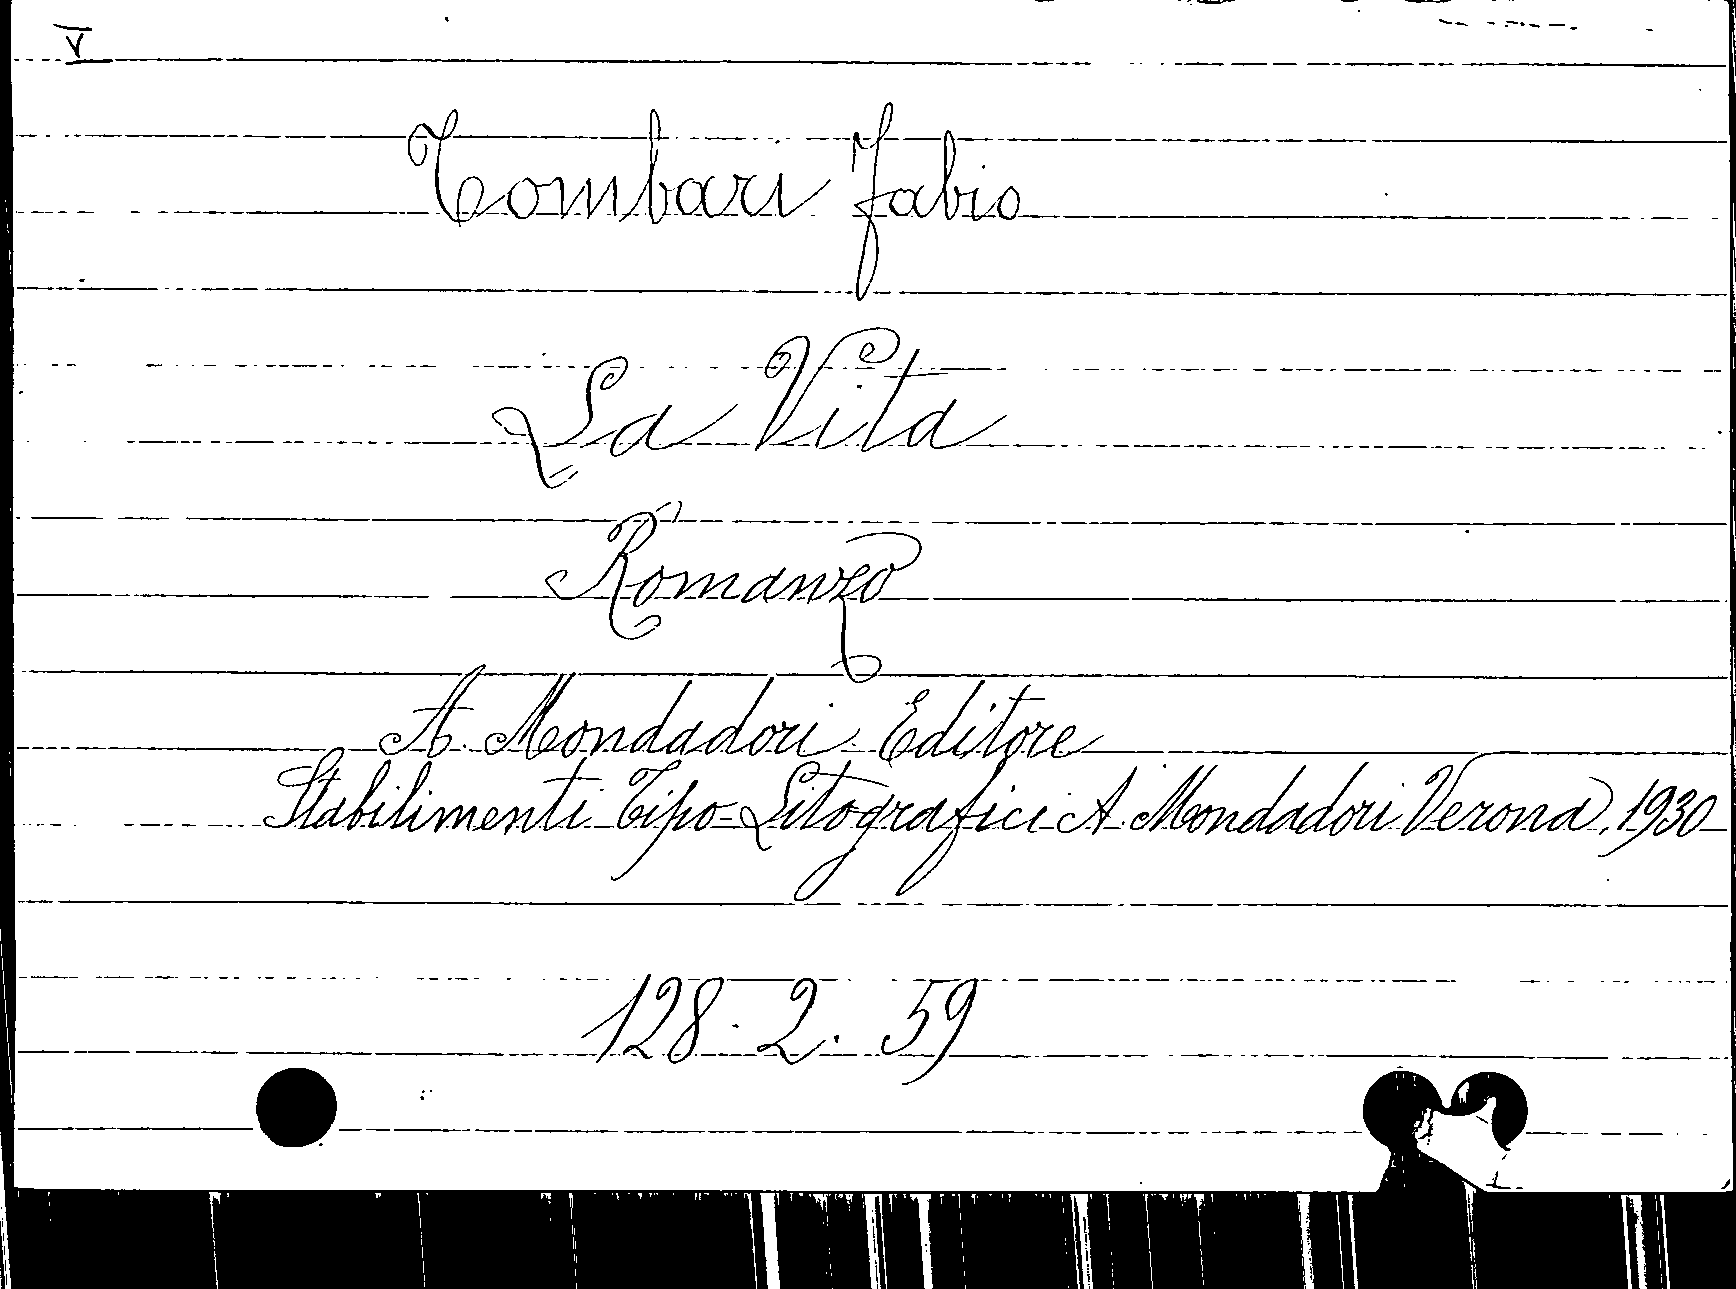 V
Tombari Fabio
La Vita
Romanzo
A. Mondadori Editore
Stabilimenti Tipo-Litografici A. Mondadori Verona, 1930
128. 2. 59